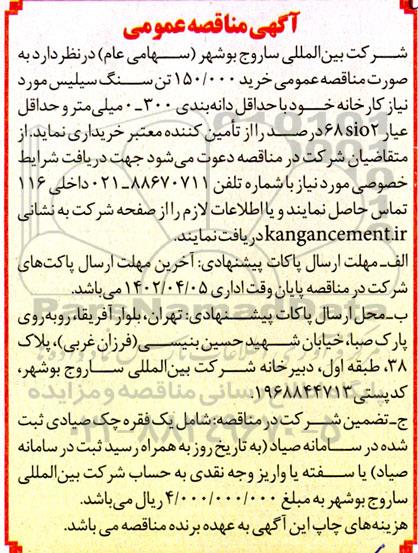 آگهی مناقصه عمومی
شرکت بین‌المللی ساروج بوشهر (سهامی عام) در نظر دارد به
صورت مناقصه عمومی خرید ۱۵۰/۰۰۰ تن سنگ سیلیس مورد
نیاز کارخانه خود با حداقل دانه‌بندی ۳۰۰-۰ میلی‌متر و حداقل
عیار sio۲ ۶۸ درصد را از تأمین کننده معتبر خریداری نماید. از
متقاضیان شرکت در مناقصه دعوت می‌شود جهت دریافت شرایط
خصوصی مورد نیاز با شماره تلفن ۸۸۶۷۰۷۱۱-۰۲۱ داخلی ۱۱۶
تماس حاصل نمایند و یا اطلاعات لازم را از صفحه شرکت به نشانی
kangancement.ir دریافت نمایند.
الف-مهلت ارسال پاکات پیشنهادی: آخرین مهلت ارسال پاکت‌های
شرکت در مناقصه پایان وقت اداری ۱۴۰۲/۰۴/۰۵ می‌باشد.
ب-محل ارسال پاکات پیشنهادی: تهران، بلوار آفریقا، روبه‌روی
پارک صبا، خیابان شهید حسین بنیسی (فرزان غربی)، پلاک
۳۸، طبقه اول، دبیرخانه شرکت بین‌المللی ساروج بوشهر،
کدپستی ۱۹۶۸۸۴۴۷۱۳.
ج-تضمین شرکت در مناقصه: شامل یک فقره چک صیادی ثبت
شده در سامانه صیاد (به تاریخ روز به همراه رسید ثبت در سامانه
صیاد) یا سفته یا واریز وجه نقدی به حساب شرکت بین‌المللی
ساروج بوشهر به مبلغ ۴/۰۰۰/۰۰۰/۰۰۰ ریال می‌باشد.
هزینه‌های چاپ این آگهی به عهده برنده مناقصه می باشد.